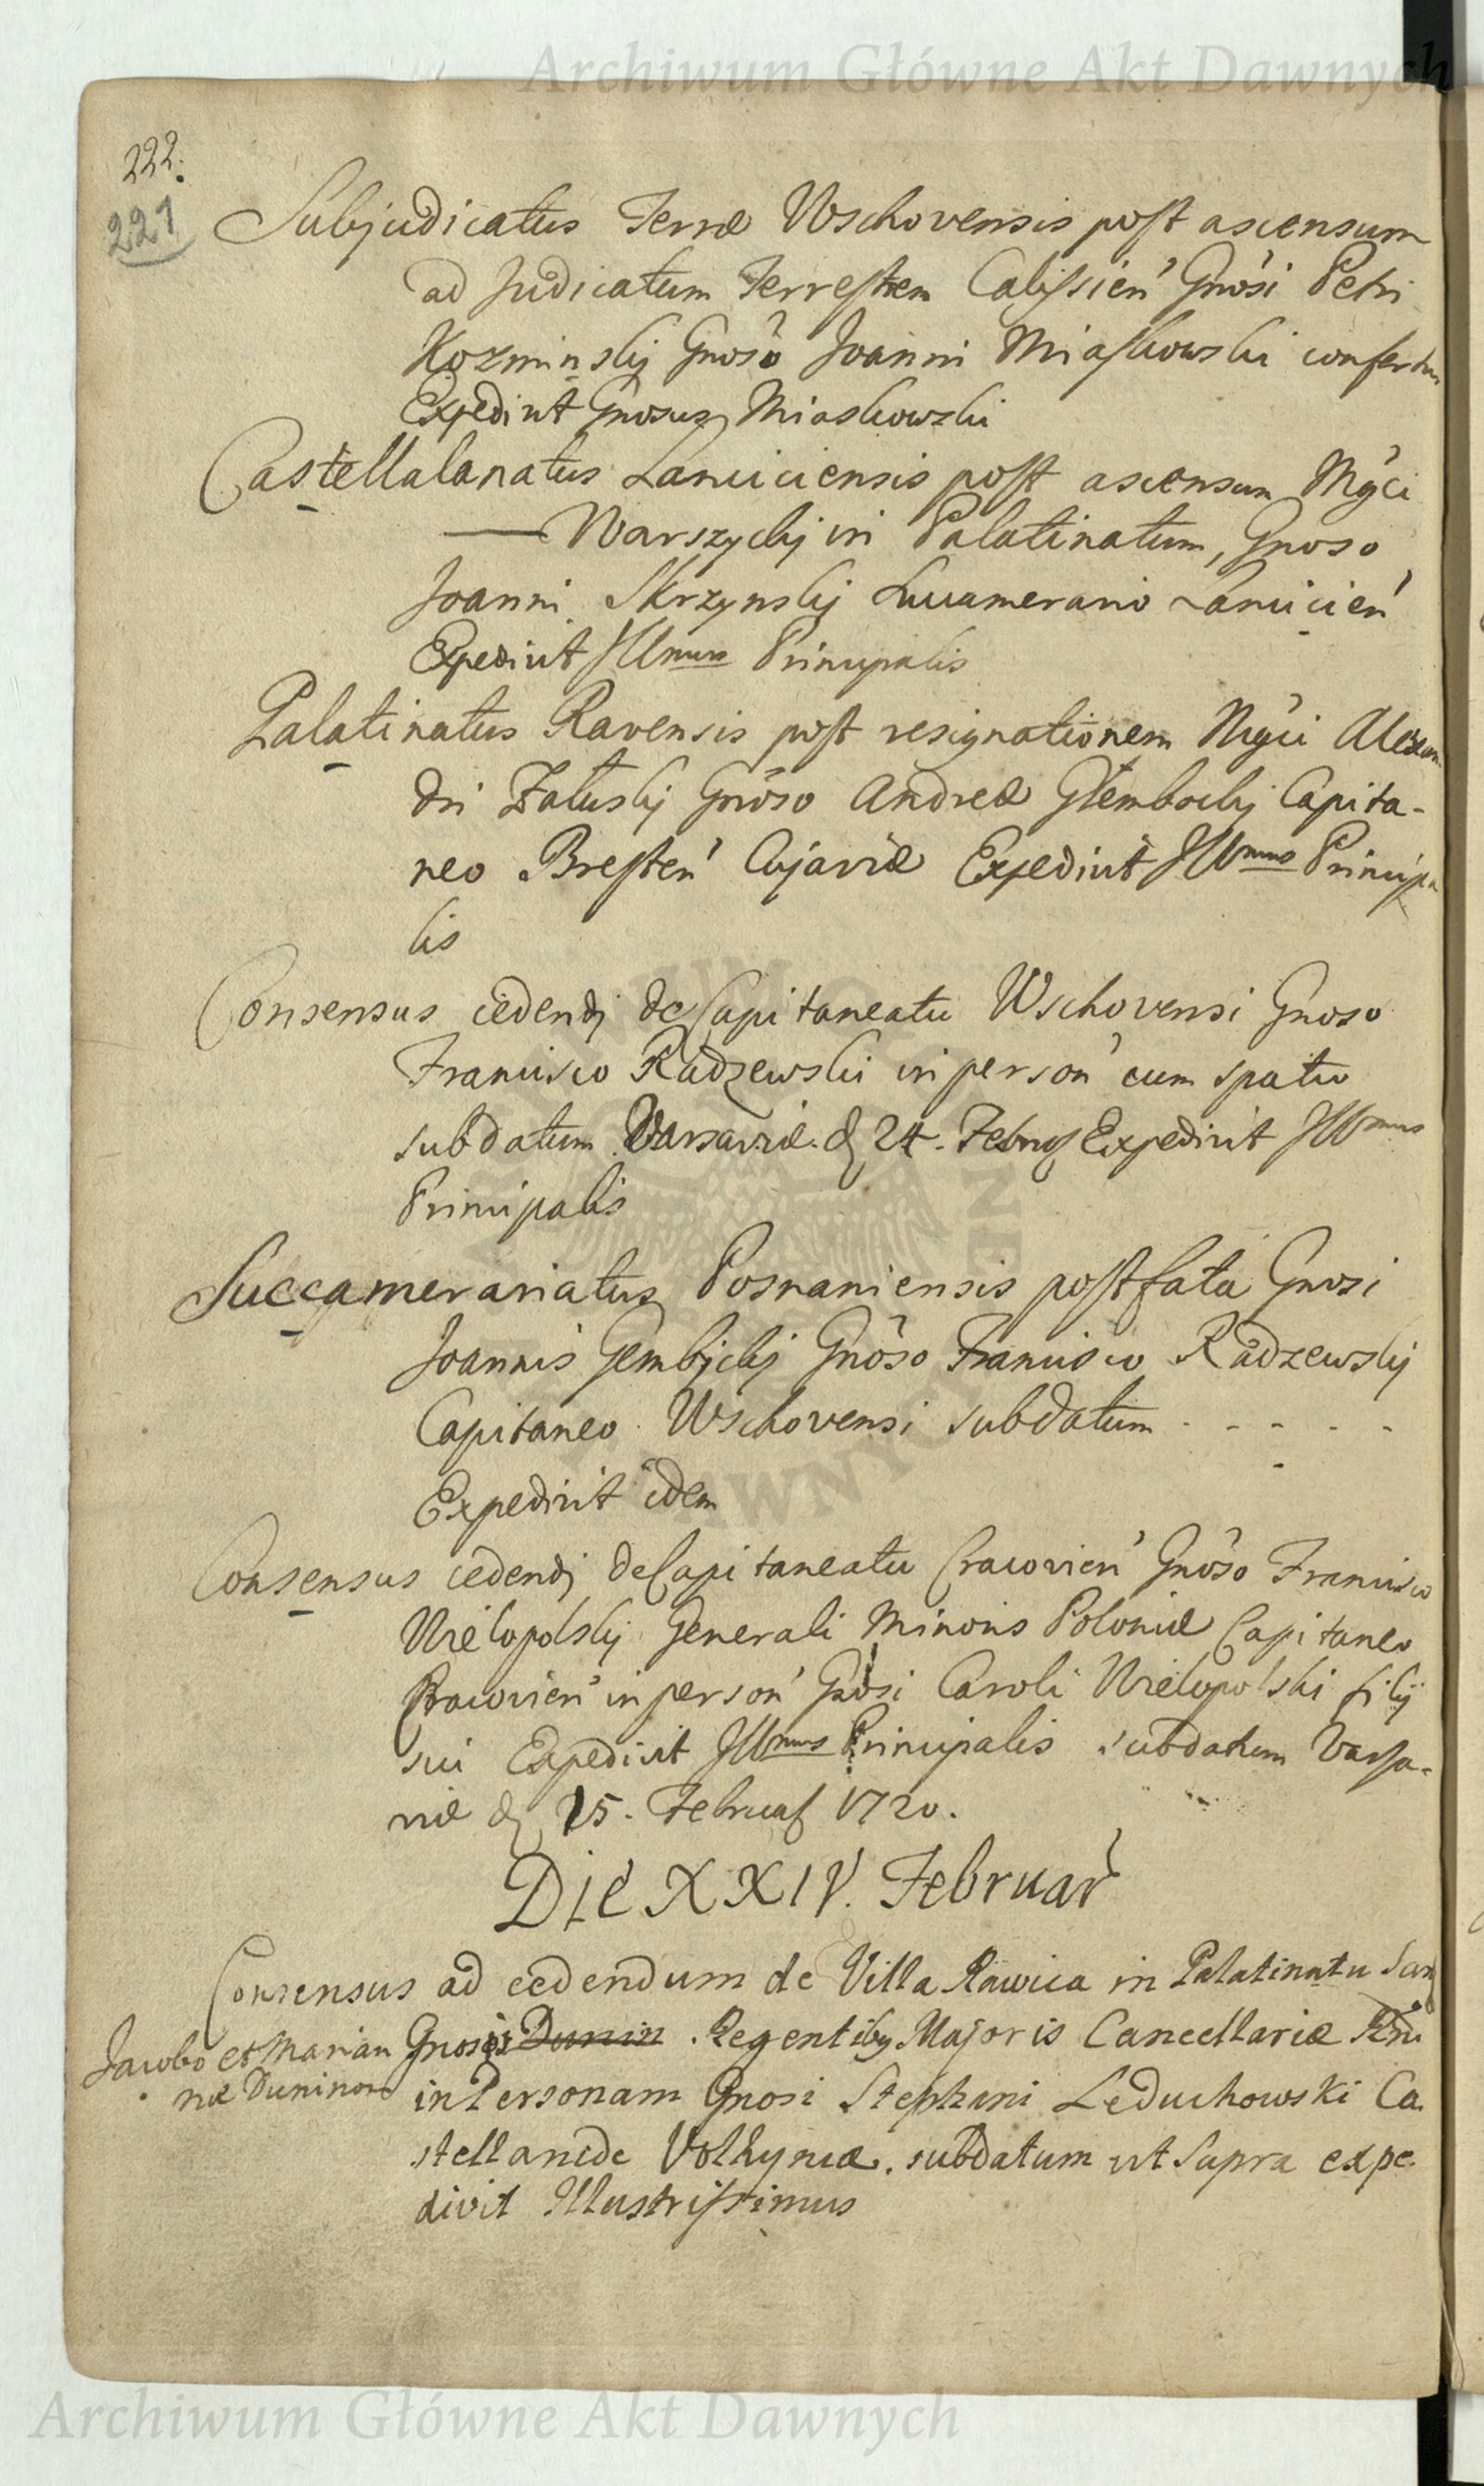 Archiwum Główne Akt Dawnych
222.
221
Subjudicatus Terræ Wschovensis post ascensum
ad Judicatum Terrestrem Calissień Gnosi Petri
Kozminskij Gnoso Joanni Miaskowski confertur
Expedivit Gnosus Miaskowski
Castellalanatus Lanciciensis post ascensum Mgci
— Warszyckij in Palatinatum, Gnoso
Joanni Skrzynskij Lancicień
Expedivit Illmus Principalis
Palatinatus Ravensis post resignationem Mgci Alexan-
dri Załuskij Gnoso Andreæ Głembockij Capita-
neo Bresteń Cujaviæ Expedivit Illmus Principa
lis
Consensus cedendj de Capitaneatu Wschovensi Gnoso
Francisco Radzewski in person cum spatio
subdatum Varsaviæ. d 24. Febru Expedivit Illmus
Principalis
Succamerariatus Posnaniensis post fata Gnosi
Joannis Gembickij Gnoso Francisco Radzewskij
Capitaneo Wschovensi subdatum - - - - -
Expedivit idem
Consensus cedendj de Capitaneatu Cracovień Gnoso Francisco
Wielopolskij Generali Minoris Poloniæ Capitaneo
Cracovień in person Gnosi Caroli Wielopolski filij
sui Expedivit Illmus Principalis subdatum Varsa-
viæ d 25. Februar 1720.
DIE XXIV. Februar
Consensus ad cedendum de Villa Rawica in Palatinatu San
Jacobo et Marian Gnosis Dunin Regentiby Majoris Cancellariæ Rni
næ Duninom in Personam Gnosi Stephani Leduchowski Ca-
stellanide Volhyniæ. subdatum ut Supra expe-
divit Illustrissimus
Archiwum Główne Akt Dawnych